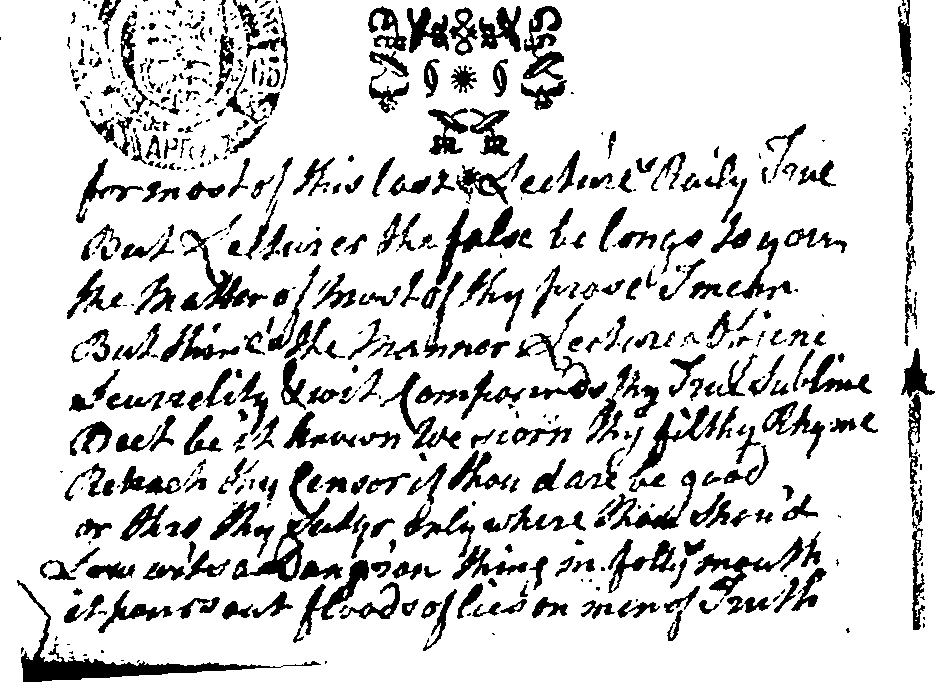 APR
for most of this last Lecture Raily True
But Lectures the false be longs to you
the Matter of most of thy prose I mean
But the Manner Lectures
Scurrelity & wit Compounds thy True Sublime
But be it known We scorn thy filthy Rhyme
thy Censor if thou dare be good
or thro thy only where thou Shou'd
Low wits a Dang'rous thing in folly's mouth
it pours out floods of lies on men of Truth